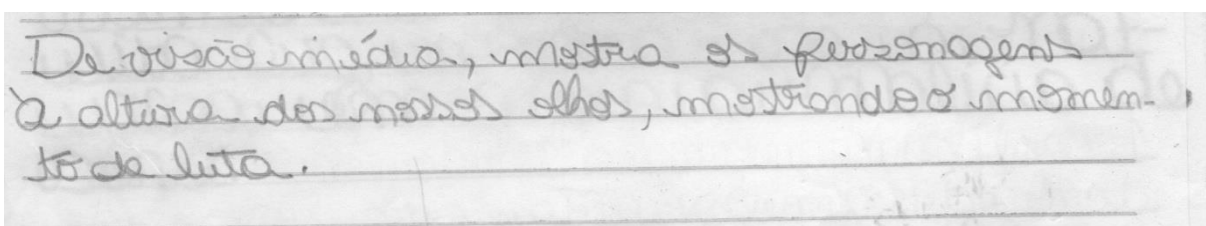 De visão média, mostra os personagens
à altura dos nossos olhos, mostrando o momen-
to de luta.